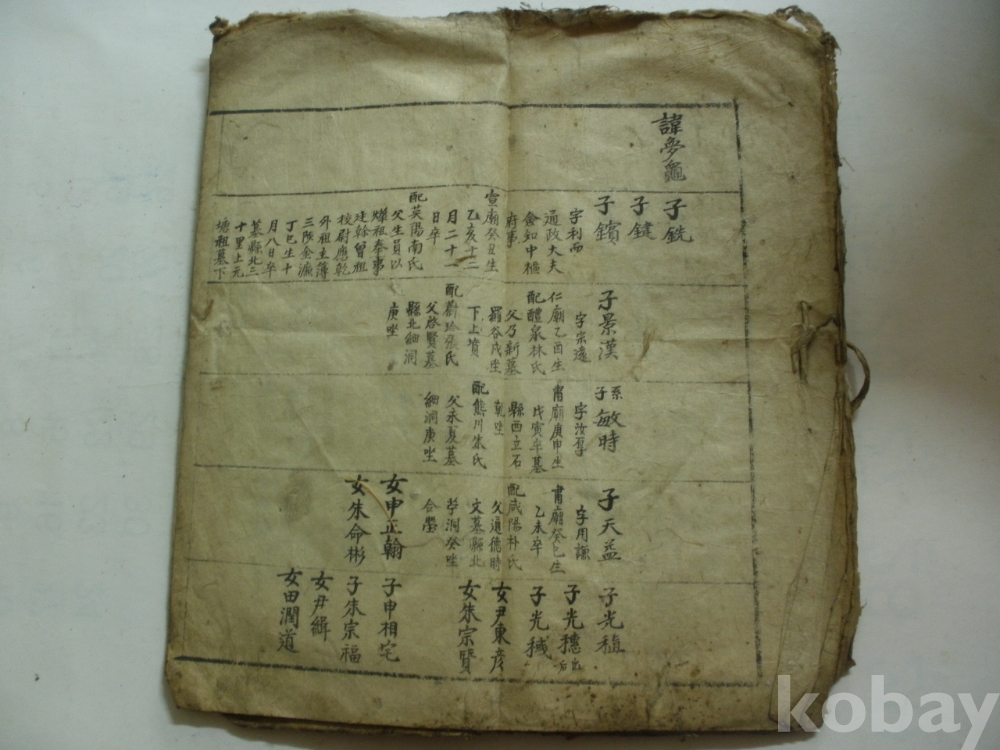 諱夢龜
子銑
子鍵
子鑌
字利而
通政大夫
僉知中樞
府事
宣廟癸丑生
乙亥十二
月二十一
日卒
配英陽南氏
父生員以
燦祖奉事
廷幹曾祖
校尉應乾
外祖主簿
三陟金濂
丁巳生十
月八日卒
墓縣北三
十里土元
塘祖墓下
子景漢
字宗遠
仁廟乙酉生
配醴泉林氏
父乃新墓
羅谷戌坐
下上墳
配蔚珍張氏
父啓賢墓
縣北細洞
庚坐
系子敏時
字汝
肅廟庚申生
戊寅卒墓
縣西立石
乾坐
配熊川朱氏
父永夏墓
細洞庚坐
子天益
字用謙
肅廟癸巳生
乙未卒
配咸陽朴氏
父通德時
文墓縣北
芧洞癸坐
合塋
女申正翰
女朱命彬
子光稙
子光穗出后
子光穢
女尹東彦
女朱宗賢
子申相宅
子朱宗福
女尹緝
女田潤道
kobay